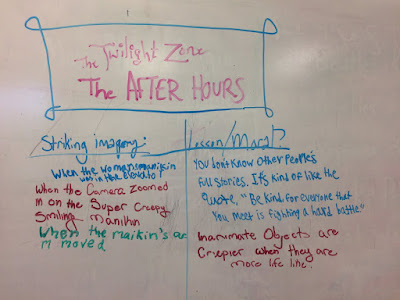 The Twilight Zone
The AFTER HOURS
Striking imagery:
Lesson/Moral?
When the woman manikin
was in the elevator
When the Camera zoomed
in on the Super Creepy
Smiling manikin
When the maikin's ar
m moved
You don't know other people's
full stories. It's kind of like the
quote, "Be kind for everyone that
you meet is fighting a hard battle."
Inanimate Objects are
Creepier when they are
more life like.